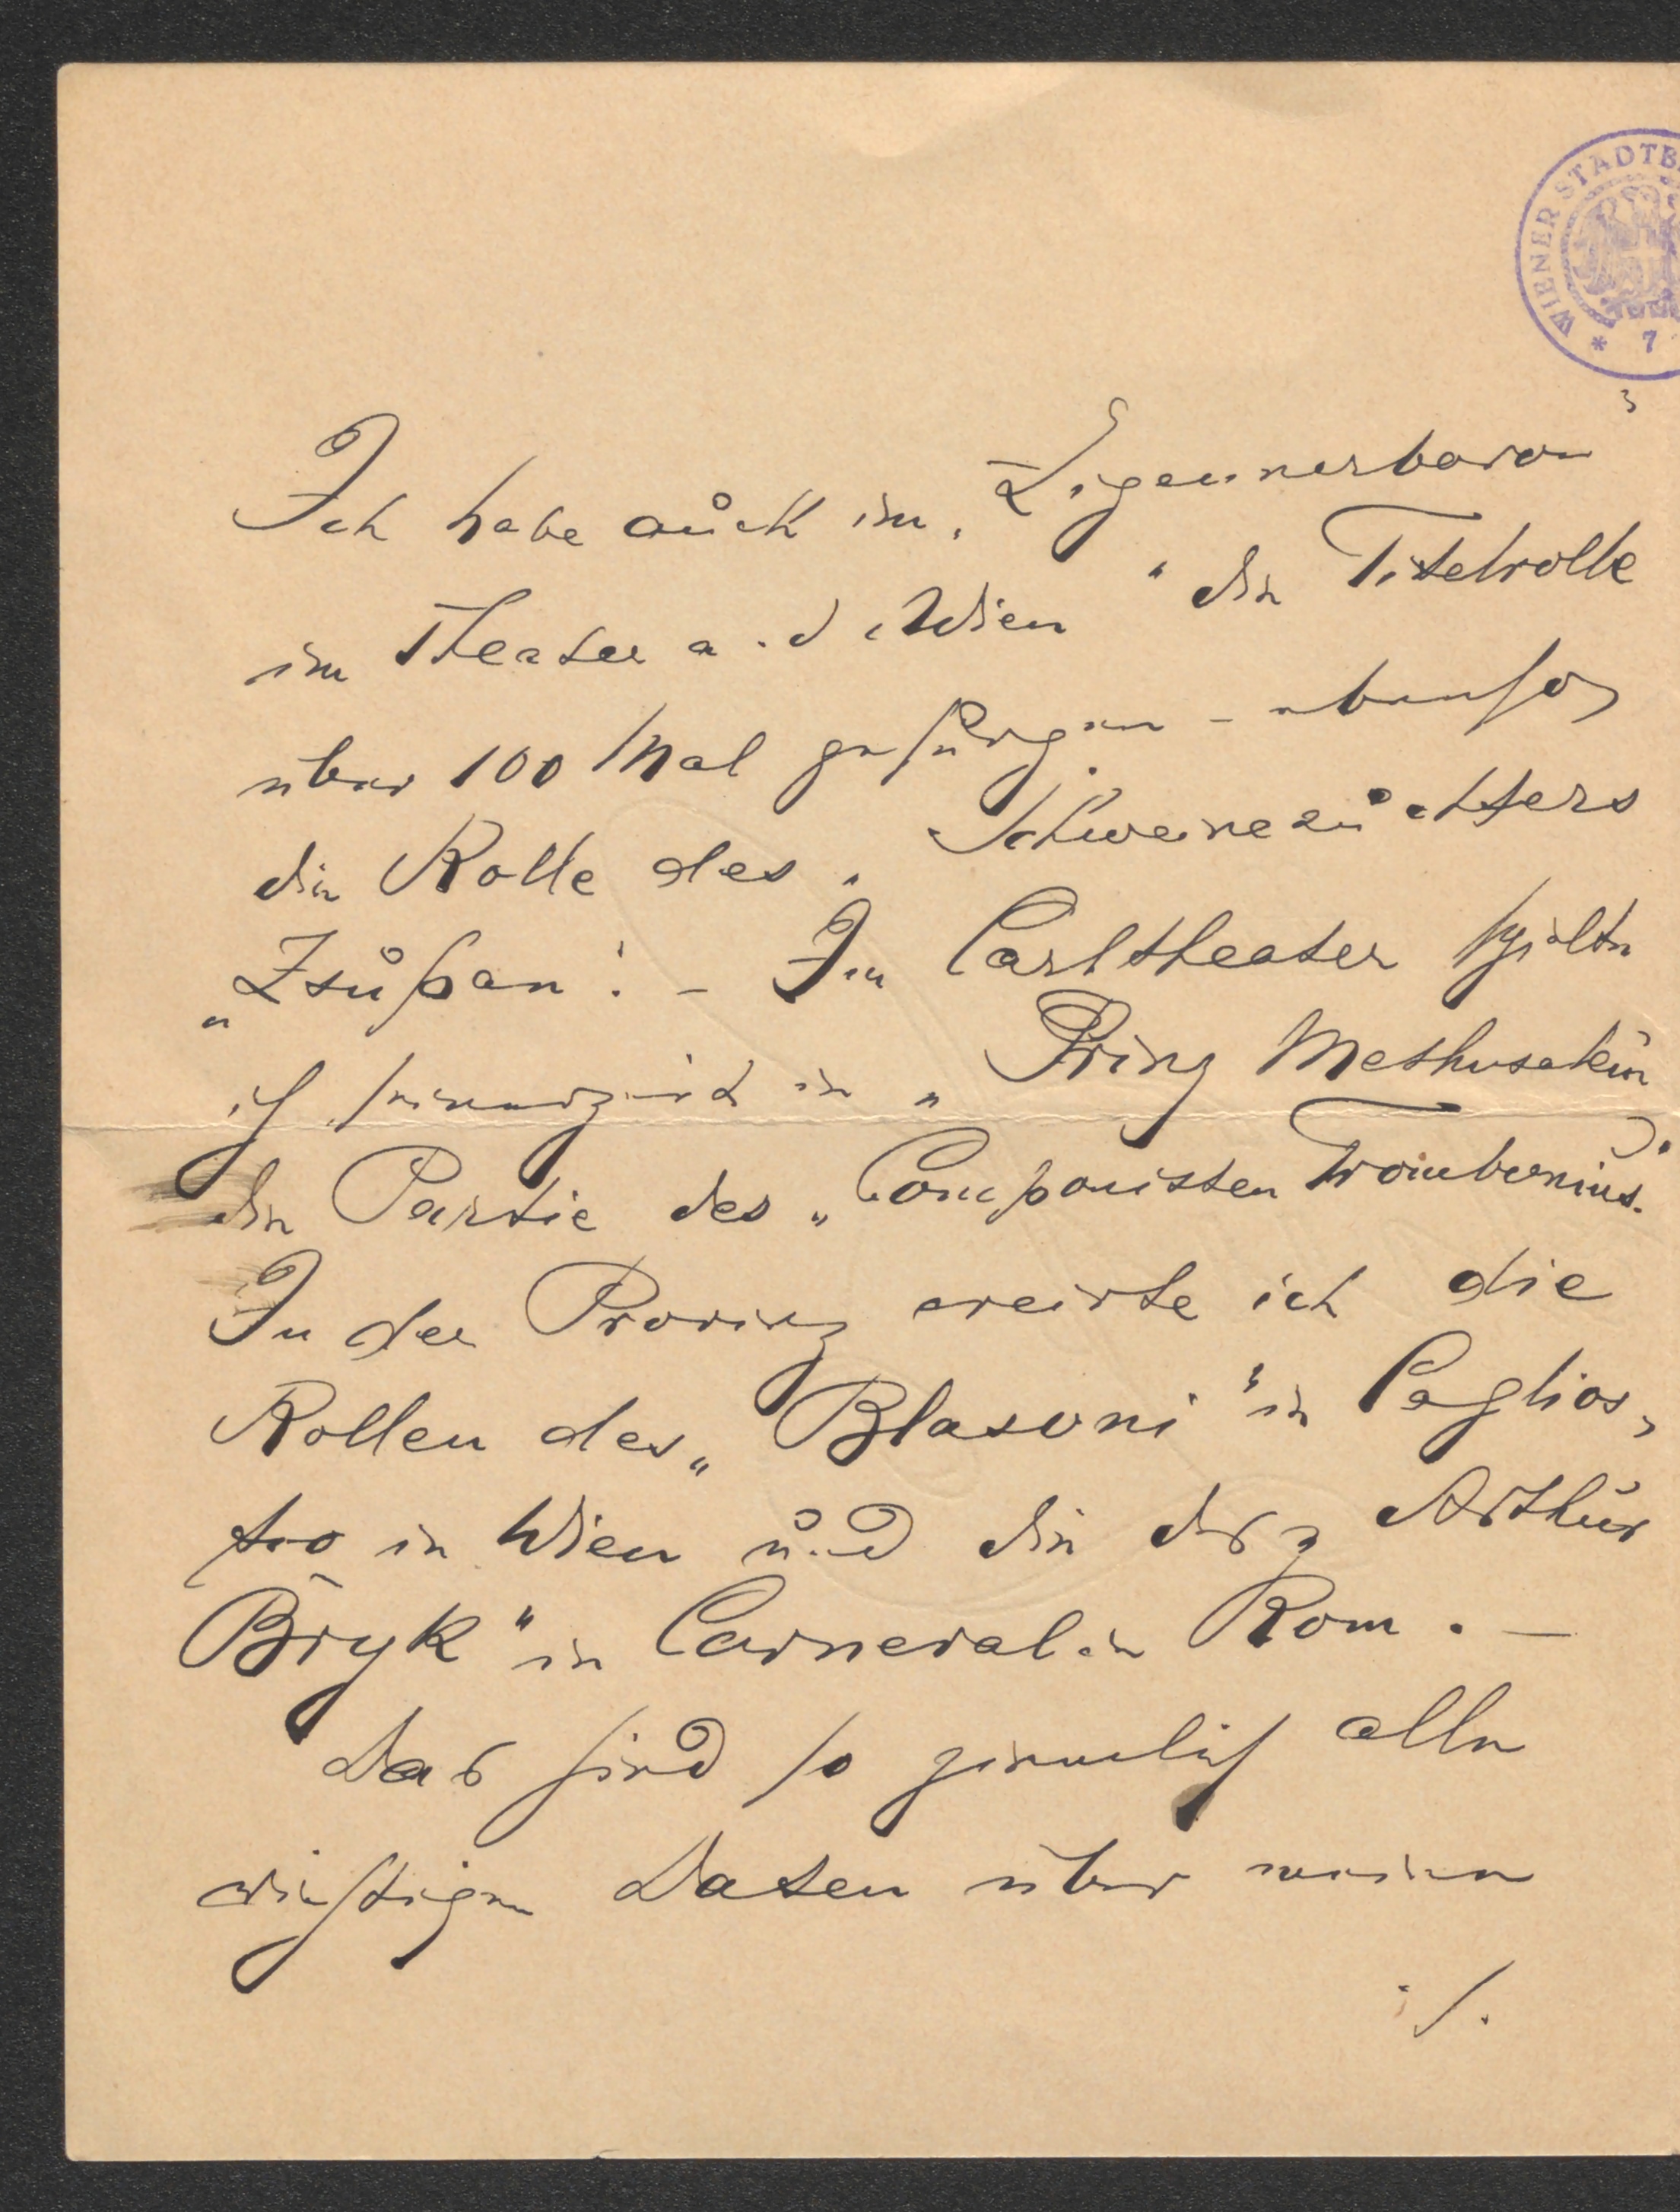 WIENER STADTB
* 7
3
Ich habe auch im „Zigeunerbaron
im Theater a. d. Wien" die Titelrolle
über 100 Mal gesungen – ebenso
die Rolle des „Schweinezüchters
„Zsupan". – Im Carltheater spielte
ich seinerzeit in „Prinz Methusalem"
die Partie des „Componisten Trombonius".
In der Provinz creirte ich die
Rollen des „Blasoni" in Caglios,
tro in Wien und die des „Arthur
Bryk" in Carneval in Rom. –
Das sind so ziemlich alle
wichtigen Daten über meine
./.